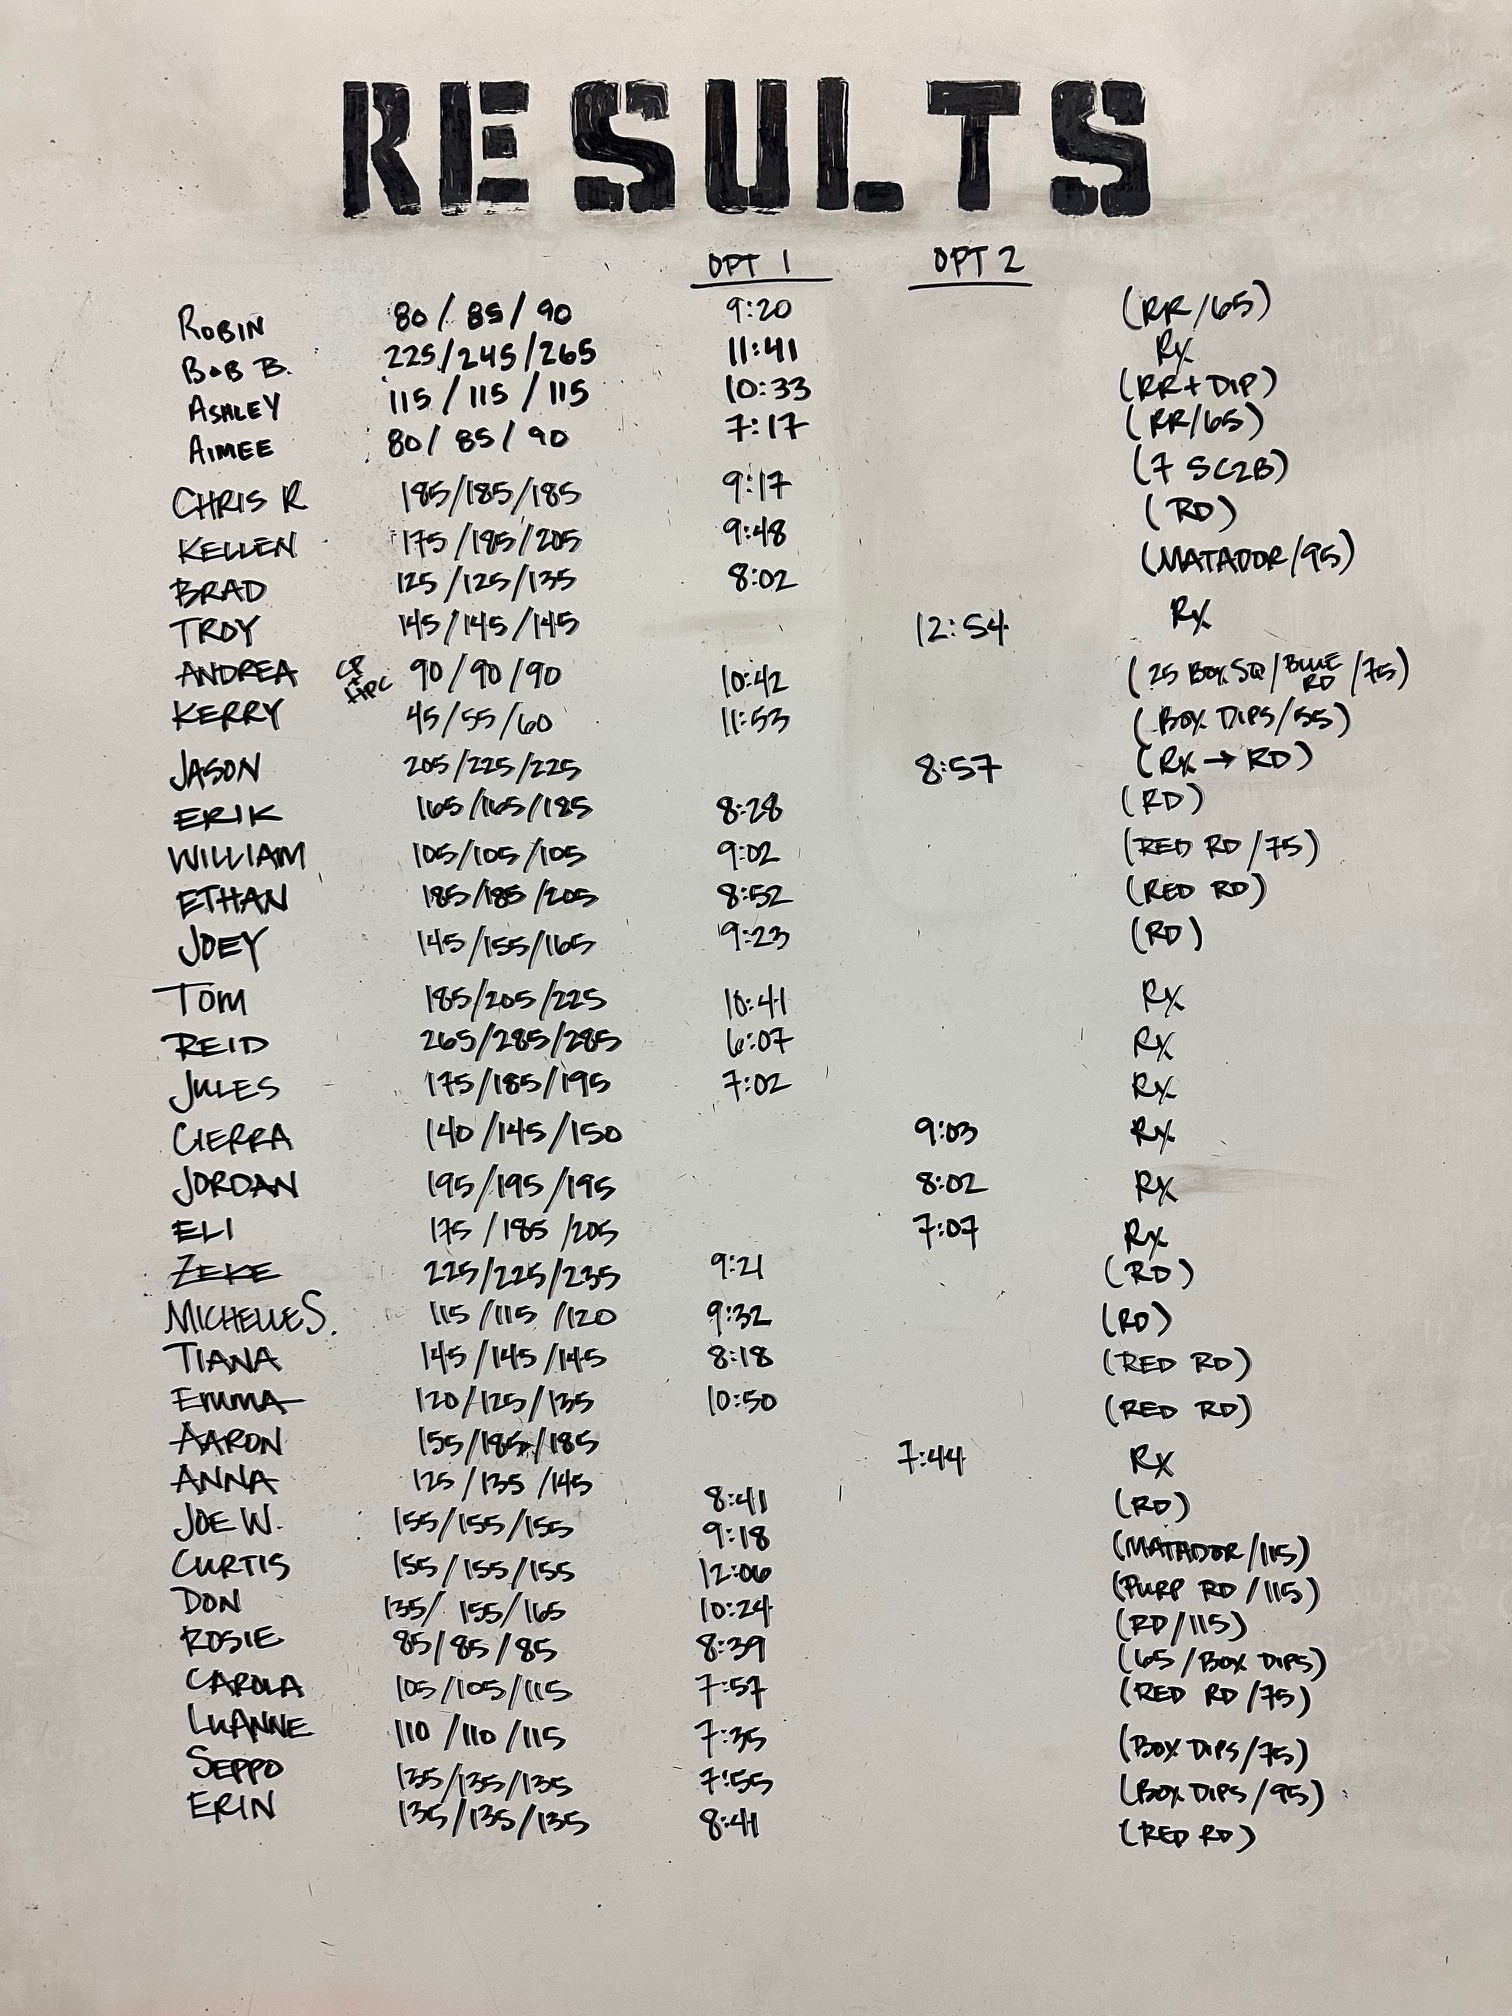 RESULTS
OPT 1 OPT 2
ROBIN 80/85/90 9:20 (RR/65)
BOB B. 225/245/265 11:41 Rx
ASHLEY 115/115/115 10:33 (RR+DIP)
AIMEE 80/85/90 7:17 (RR/65)
CHRIS R 185/185/185 9:17 (7 SC2B)
KELLEN 175/185/205 9:48 (RD)
BRAD 125/125/135 8:02 (MATADOR/95)
TROY 145/145/145 12:54 Rx
ANDREA 90/90/90 10:42 (25 BOX SQ/BLUE RD/75)
KERRY 45/55/60 11:53 (BOX DIPS/55)
JASON 205/225/225 8:57 (Rx → RD)
ERIK 165/165/185 8:28 (RD)
WILLIAM 105/105/105 9:02 (RED RD/75)
ETHAN 185/185/205 8:52 (RED RD)
JOEY 145/155/165 9:23 (RD)
TOM 185/205/225 10:41 Rx
REID 265/285/285 6:07 Rx
JULES 175/185/195 7:02 Rx
CIERRA 140/145/150 9:03 Rx
JORDAN 195/195/195 8:02 Rx
ELI 175/185/205 7:07 Rx
ZEKE 225/225/235 9:21 (RD)
MICHELLE S. 115/115/120 9:32 (RD)
TIANA 145/145/145 8:18 (RED RD)
EMMA 120/125/135 10:50 (RED RD)
AARON 155/185/185 7:44 Rx
ANNA 125/135/145 8:41 (RD)
JOE W. 155/155/155 9:18 (MATADOR/115)
CURTIS 155/155/155 12:06 (PURP RD/115)
DON 135/155/165 10:24 (RD/115)
ROSIE 85/85/85 8:39 (65/BOX DIPS)
CAROLA 105/105/115 7:57 (RED RD/75)
LUANNE 110/110/115 7:35 (BOX DIPS/75)
SEPPO 135/135/135 7:55 (BOX DIPS/95)
ERIN 135/135/135 8:41 (RED RD)